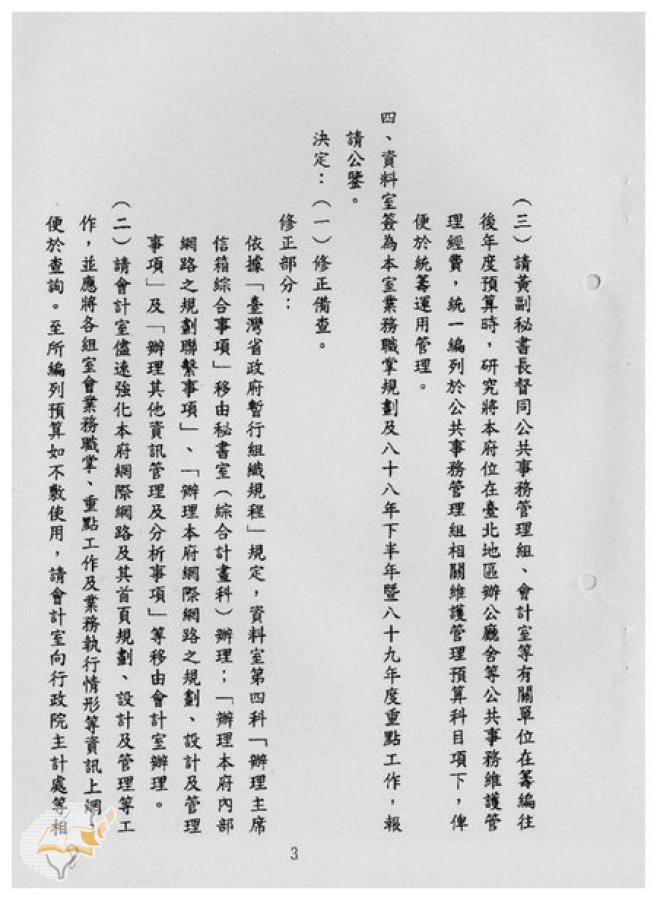 (三)請黃副秘書長督同公共事務管理組、會計室等有關單位在籌編往
後年度預算時，研究將本府位在臺北地區辦公廳舍等公共事務維護管
理經費，統一編列於公共事務管理組相關維護管理預算科目項下，俾
便於統籌運用管理。
四、資料室簽為本室業務職掌規劃及八十八年下半年暨八十九年度重點工作，報
請公鑒。
決定：(一)修正備查。
修正部分：
依據「臺灣省政府暫行組織規程」規定，資料室第四科「辦理主席
信箱綜合事項」移由秘書室(綜合計畫科)辦理；「辦理本府內部
網路之規劃聯繫事項」、「辦理本府網際網路之規劃、設計及管理
事項」及「辦理其他資訊管理及分析事項」等移由會計室辦理。
(二)請會計室儘速強化本府網際網路及其首頁規劃、設計及管理等工
作，並應將各組室會業務職掌、重點工作及業務執行情形等資訊上網，
便於查詢。至所編列預算如不敷使用，請會計室向行政院主計處等相
3